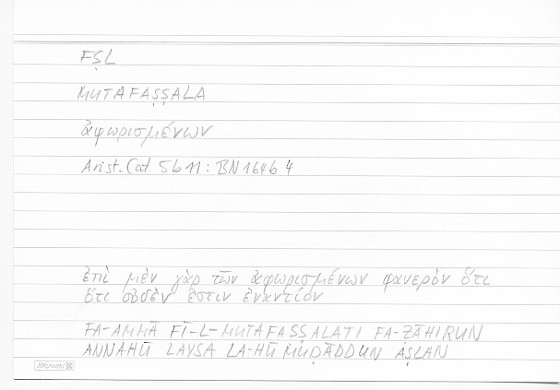 FṢL
MUTAFAṢṢALA
ἀφωρισμένων
Arist. Cat 5b11 : BN 164b 4
ἐπὶ μὲν γὰρ τῶν ἀφωρισμένων φανερὸν ὅτι
ὅτι οὐδέν ἐστιν ἐναντίον
FA-AMMĀ FĪ-L-MUTAFAṢṢALATI FA-ẒĀHIRUN
ANNAHŪ LAYSA LA-HŪ MUḌĀDDUN AṢLAN